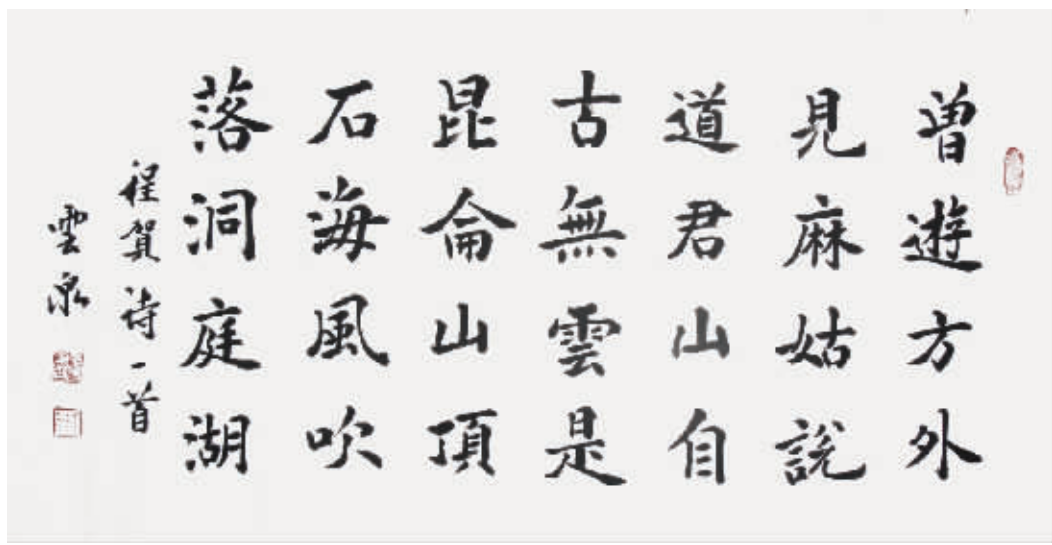 曽遊方外
見麻姑説
道君山自
古無雲是
昆侖山頂
石海風吹
落洞庭湖
程賀诗一首
雲泉